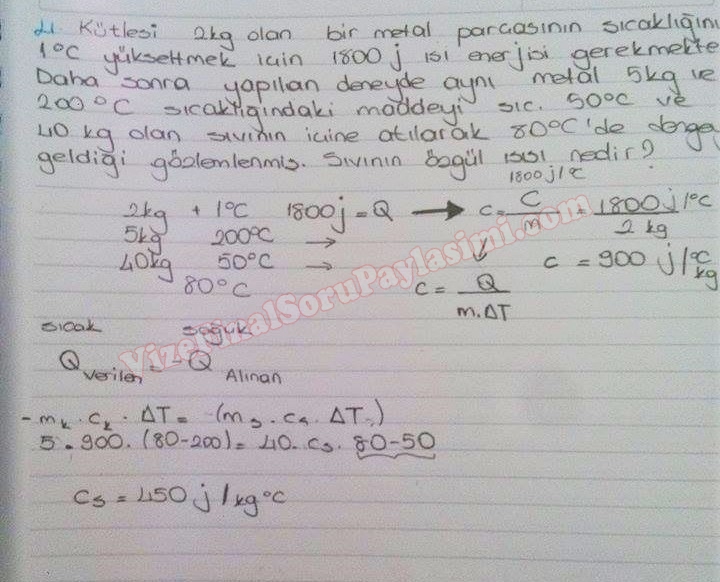 2. Kütlesi 2kg olan bir metal parçasının sıcaklığını
1°C yükseltmek için 1800 j ısı enerjisi gerekmekte
Daha sonra yapılan deneyde aynı metal 5kg ve
200°C sıcaklığındaki maddeyi sıc. 50°C ve
40 kg olan sıvının içine atılarak 80°C'de denge
geldiği gözlemlenmiş. Sıvının özgül ısısı nedir?
1800 j/°C
2kg + 1°C 1800j = Q → c = C/m = 1800 j/°C / 2 kg
5kg 200°C →
40kg 50°C → c = 900 j/°C kg
80°C c = Q / m.ΔT
sıcak soğuk
Q Verilen = -Q Alınan
- mk . ck . ΔT = -(ms . cs . ΔT)
5 . 900 . (80-200) = 40 . cs . 80-50
cs = 450 j/kg°C
VizeFinalSoruPaylasimi.com